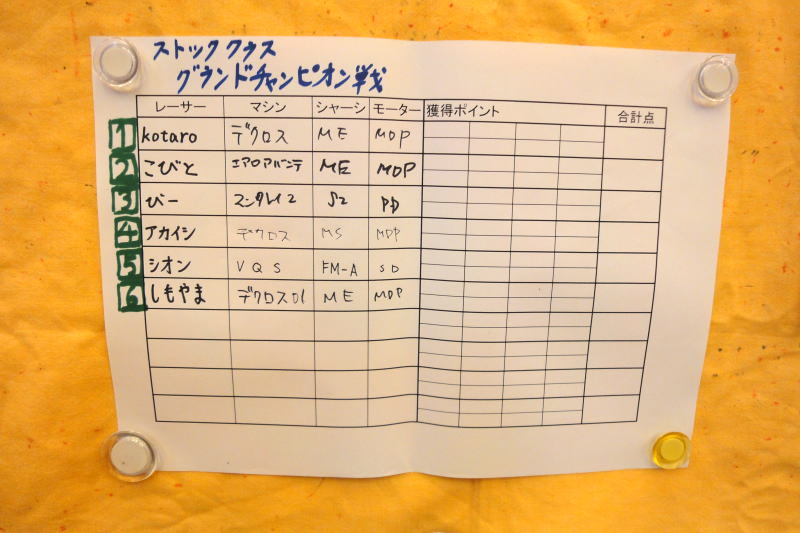 ストッククラス
グランドチャンピオン戦
レーサー マシン シャーシ モーター 獲得ポイント 合計点
1 kotaro デクロス ME MDP
2 こびと エアロアバンテ ME MDP
3 びー マンタレイ2 S2 PD
4 アカイシ デクロス MS MDP
5 シオン VQS FM-A SD
6 しもやま デクロス01 ME MDP